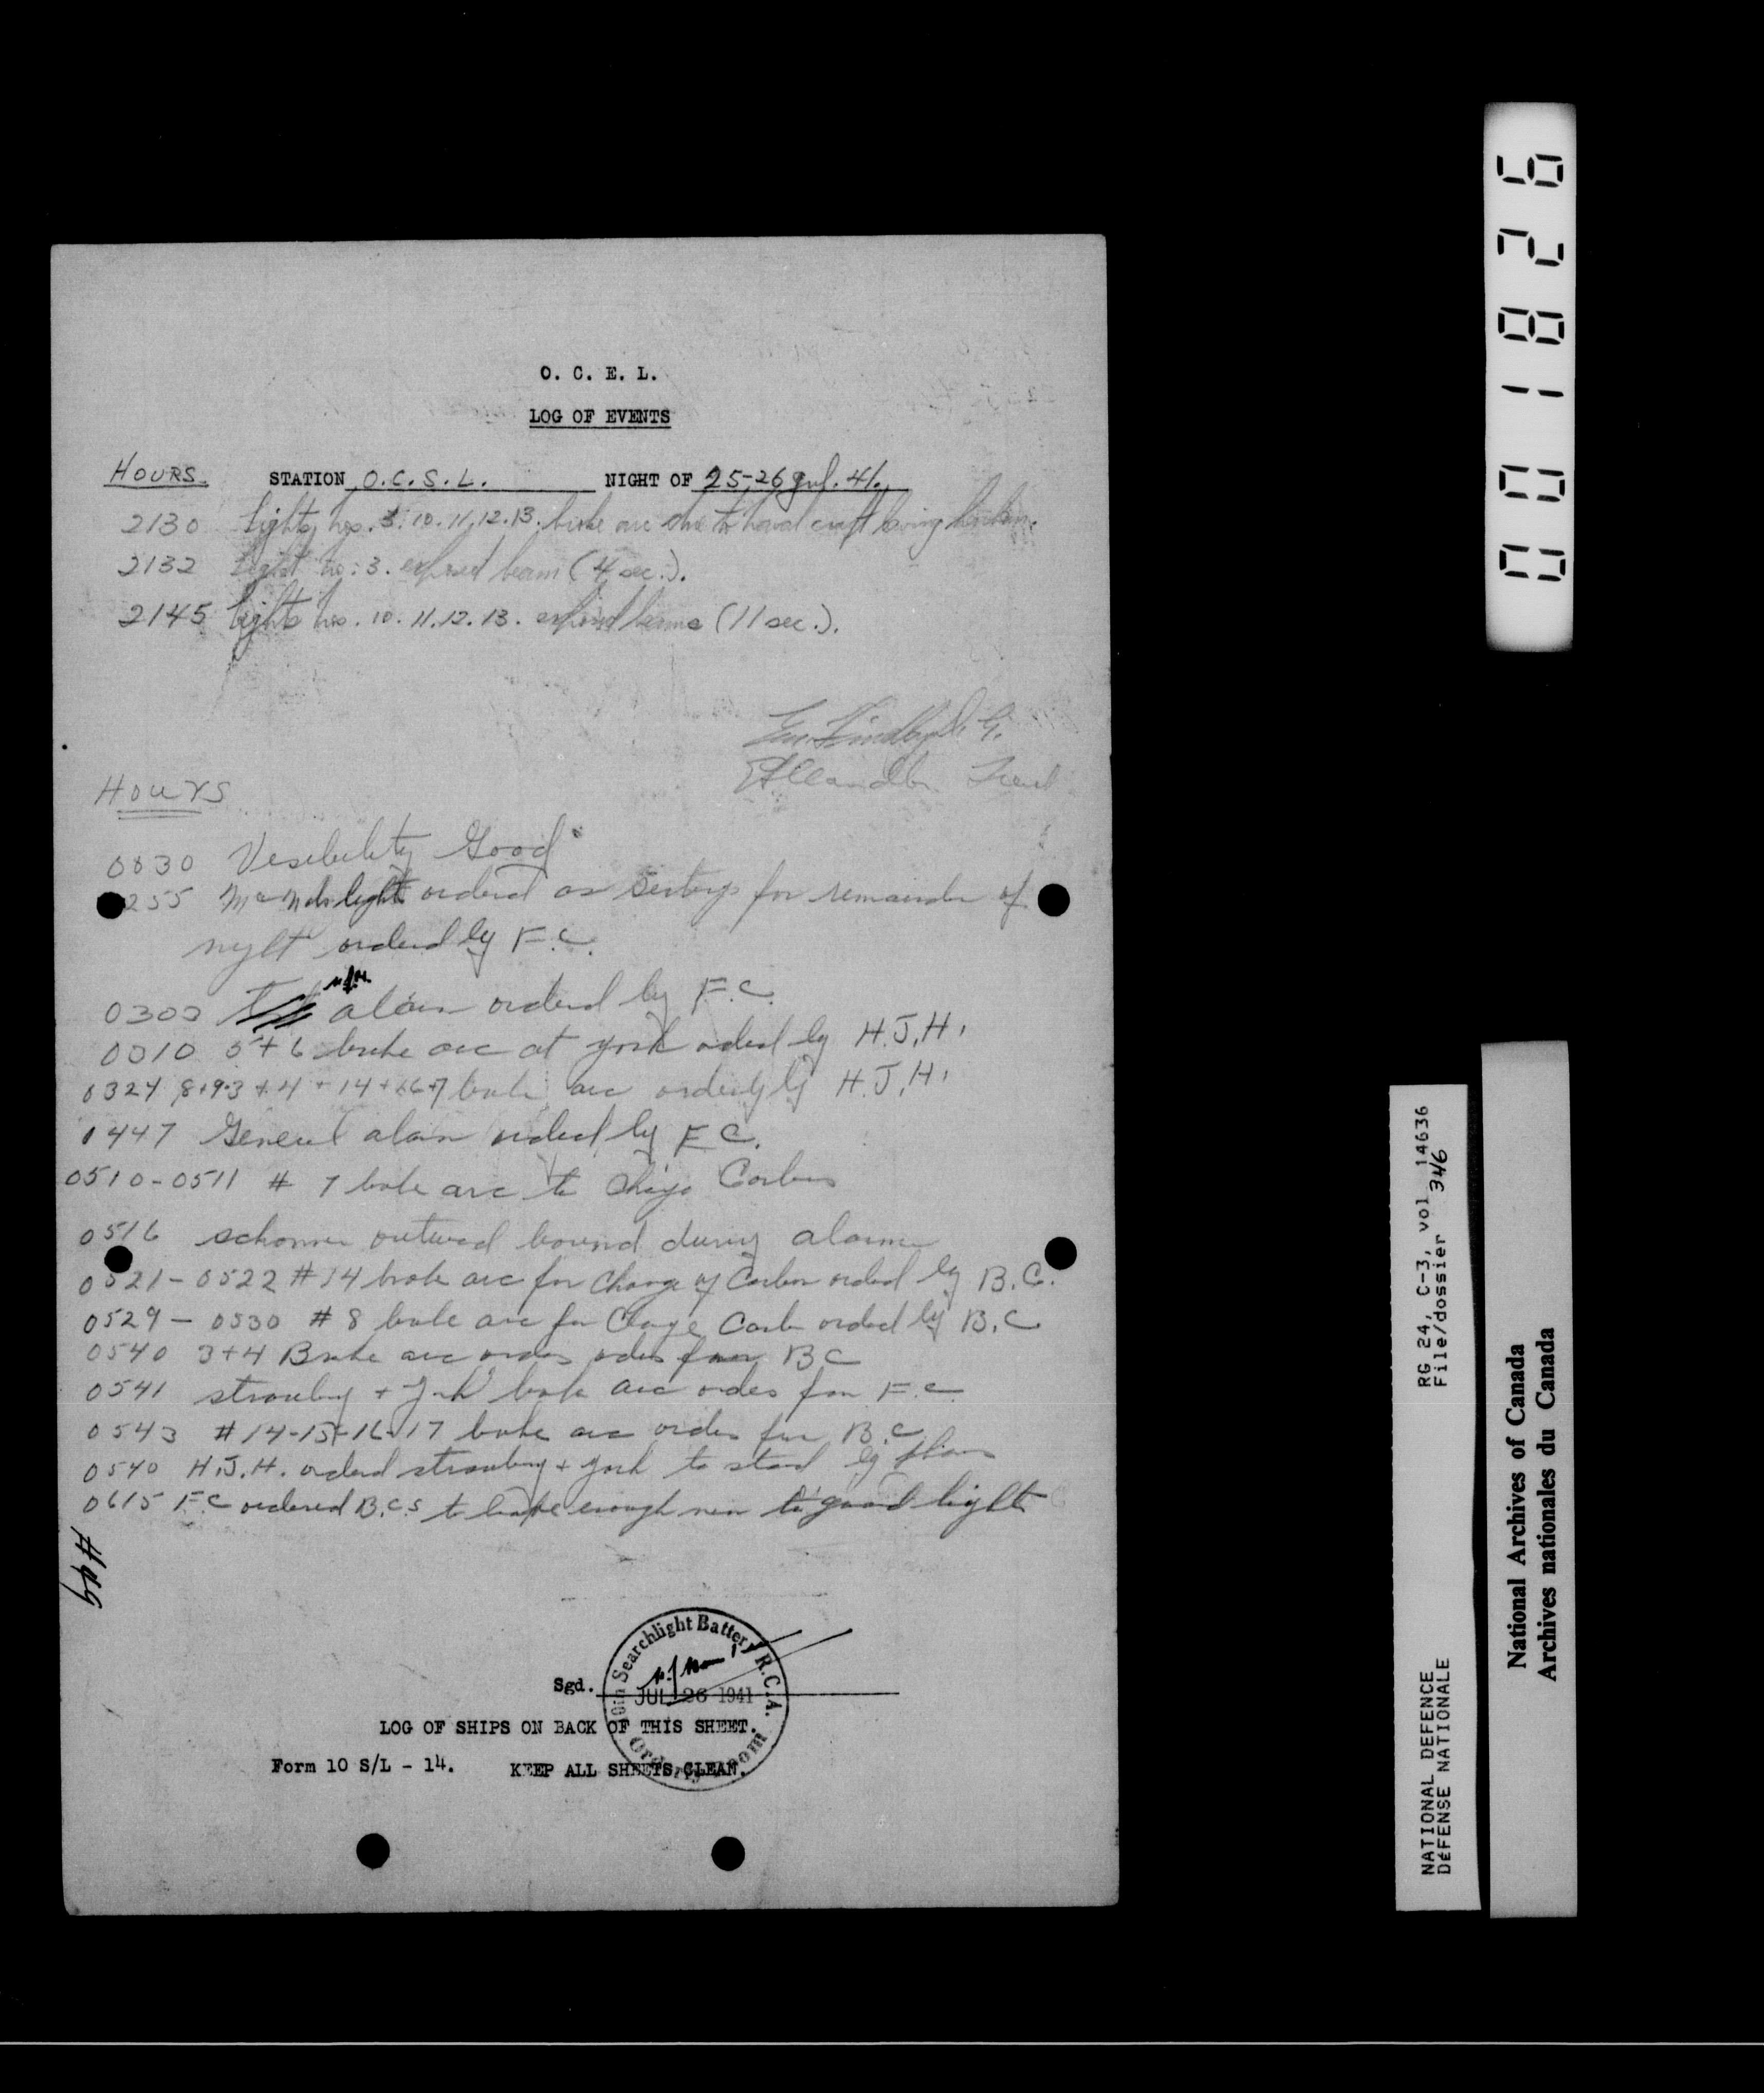 O. C. E. L.
LOG OF EVENTS
HOURS. STATION O.C.S.L. NIGHT OF 25-26 Jul. 41.
2130 Lights nos. 3. 10. 11. 12. 13. broke arc due to naval craft leaving harbour.
2132 Light no: 3. exposed beam (4 sec.).
2145 Lights nos. 10. 11. 12. 13. exposed beams (11 sec.).
Hours
0030 Visibility Good
255 light ordered as Sentry for remainder of
ordered by F.C.
0300 alarm ordered by F.C.
0310 5+6 broke arc at York ordered by H.J.H.
0324 broke arc by H.J.H.
0447 General alarm ordered by F.C.
0510-0511 # 7 broke arc to Carbons
0516 schooner outward bound during alarm
0521-0522 #14 broke arc for Change of Carbon ordered by B.C.
0529 - 0530 # 8 broke arc for Change Carbon ordered by B.C
0540 3+4 Broke arc orders from BC
0541 + York broke arc orders from F.C
0543 #14-15-16-17 broke arc orders from B.C
0540 H.J.H. ordered + York to stand by
0615 F.C ordered B.C.s to leave enough men to guard lights
Sgd.
10th Searchlight Battery R.C.A.
JUL 26 1941
Orderly Room
LOG OF SHIPS ON BACK OF THIS SHEET.
Form 10 S/L - 14. KEEP ALL SHEETS CLEAN.
001826
RG 24, C-3, vol 14636
File/dossier 346
NATIONAL DEFENCE
DÉFENSE NATIONALE
National Archives of Canada
Archives nationales du Canada